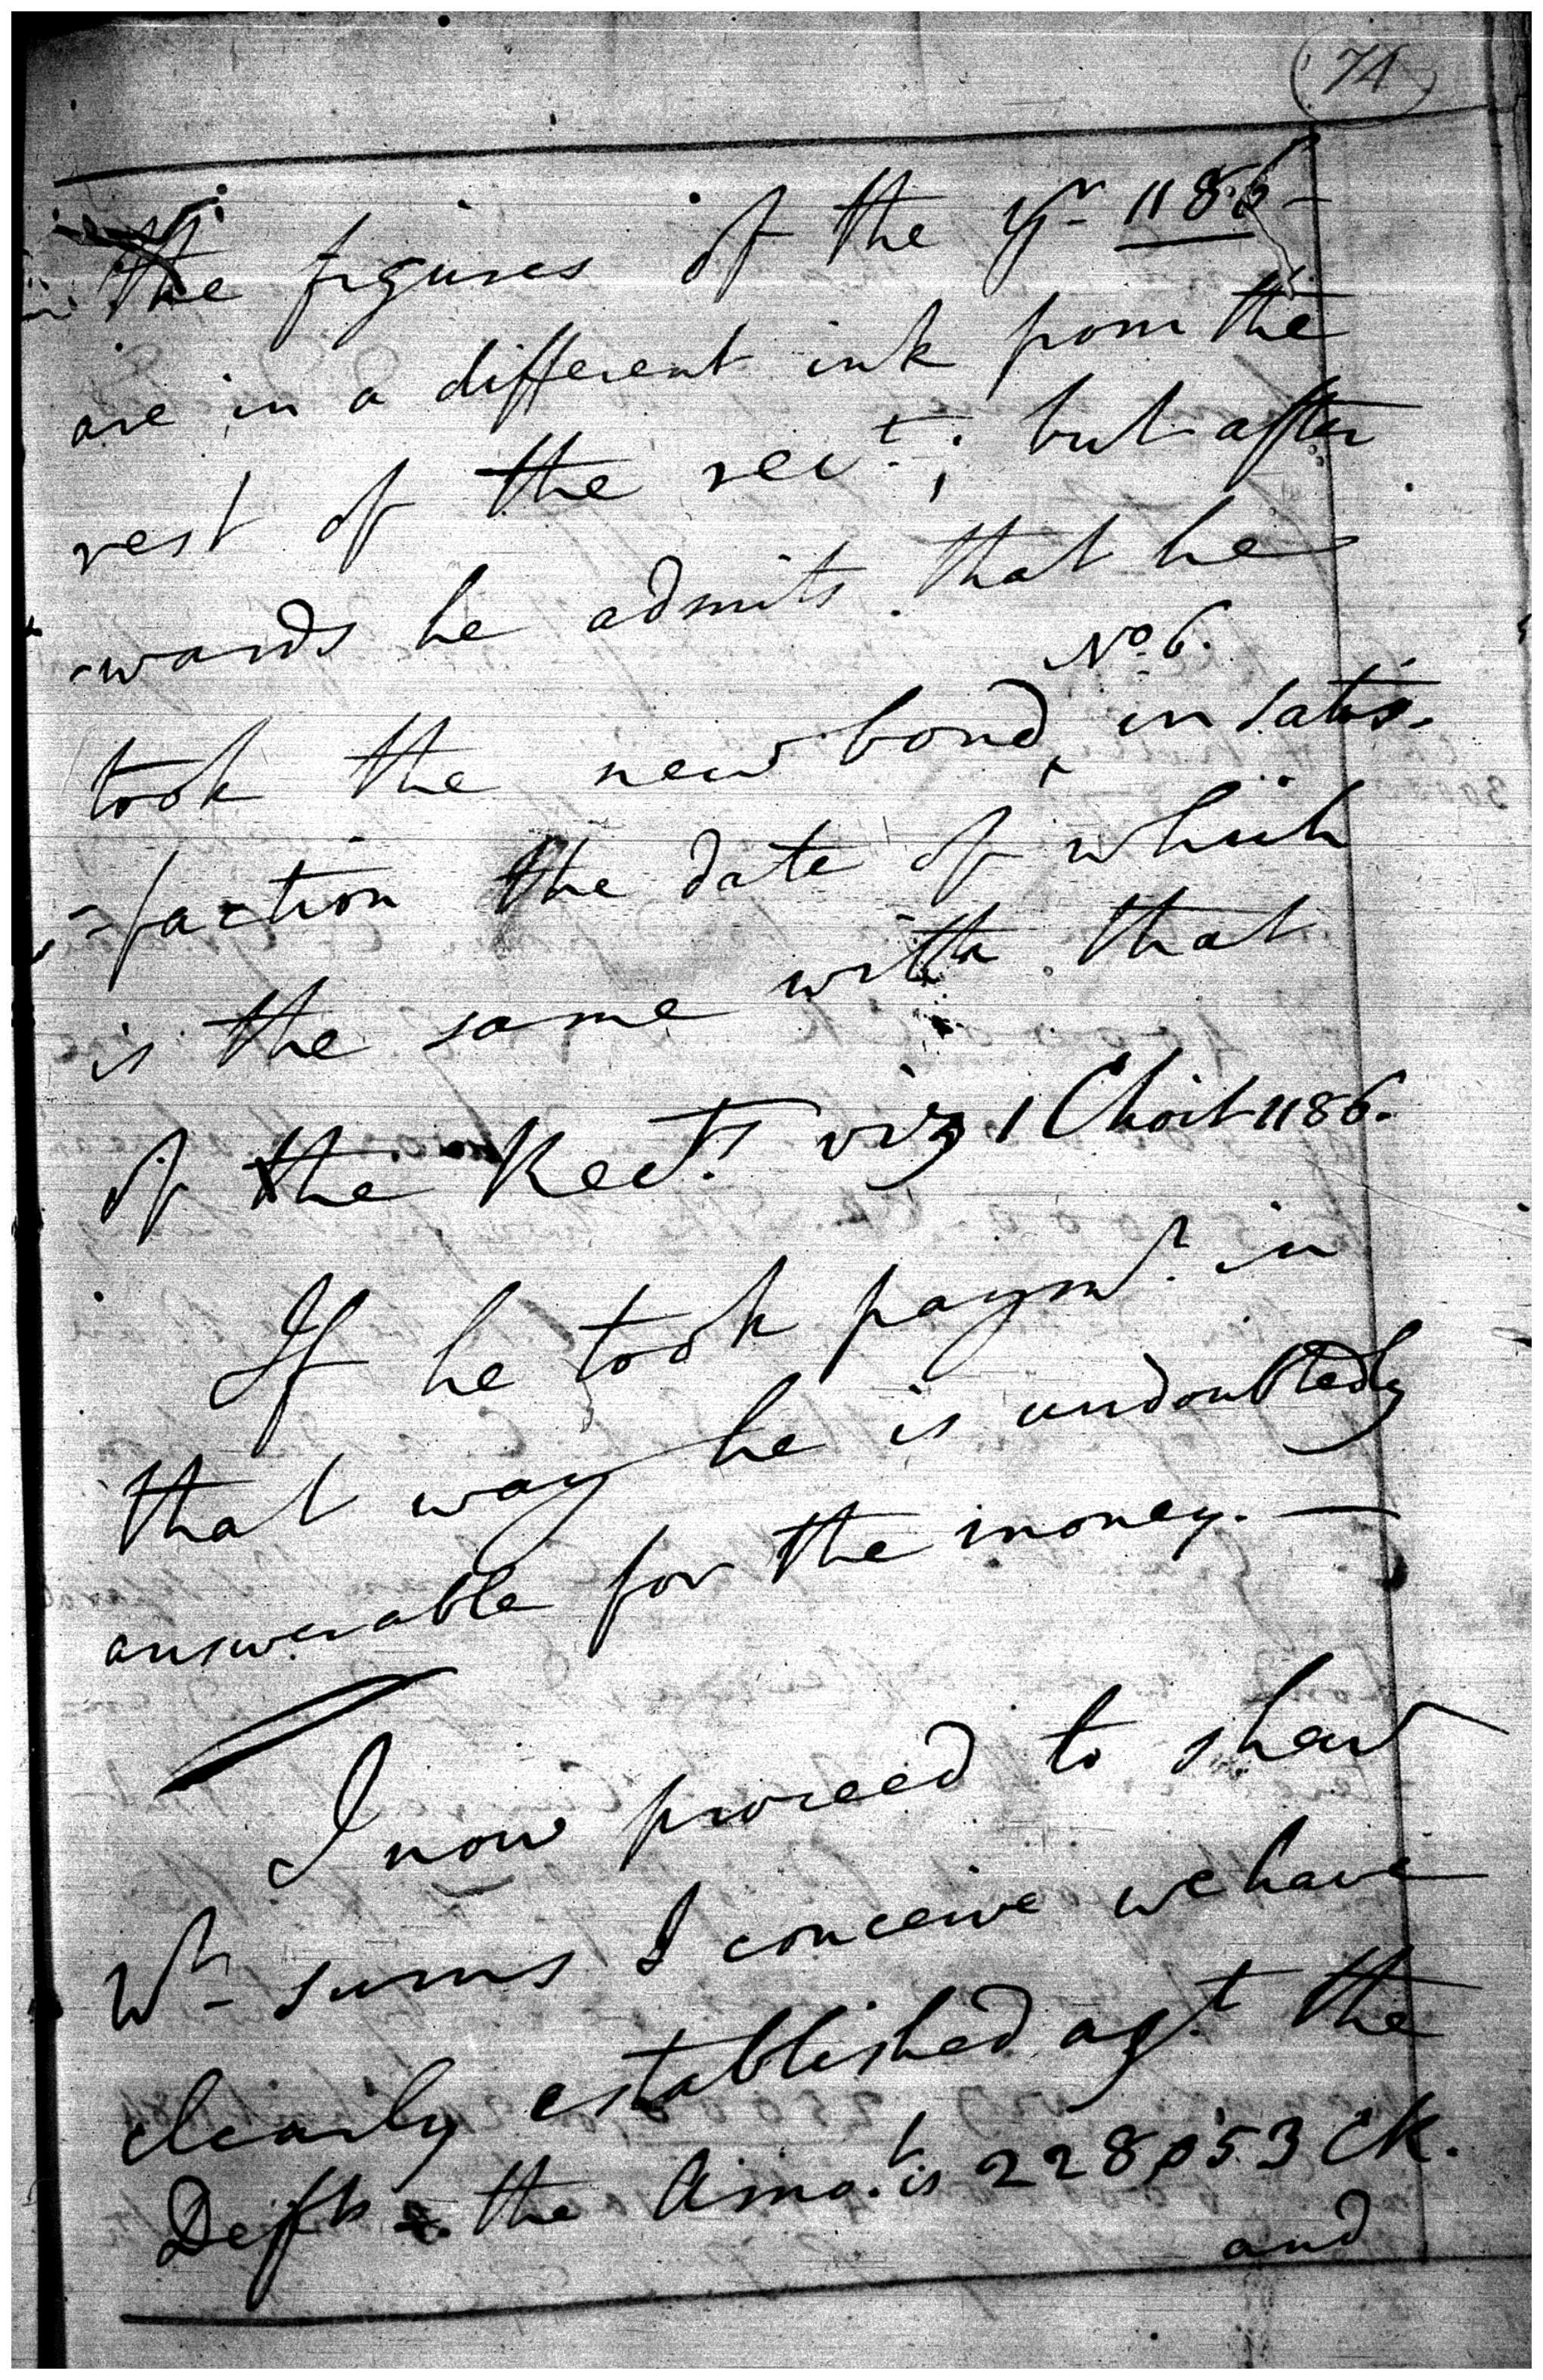 74
The figures of the yr 1186-
are in a different ink from the
rest of the rect; but after
-wards he admits that he
No. 6.
took the new bond in satis-
-faction the date of which
is the same with that
of the Rect. viz 1 Choit 1186.
If he took paymt. in
that way he is undoubtedly
answerable for the money. —
I now proceed to shew
Wh sums I conceive we have
clearly established agt. the
Defts & the Amot. is 228,053 CR.
and